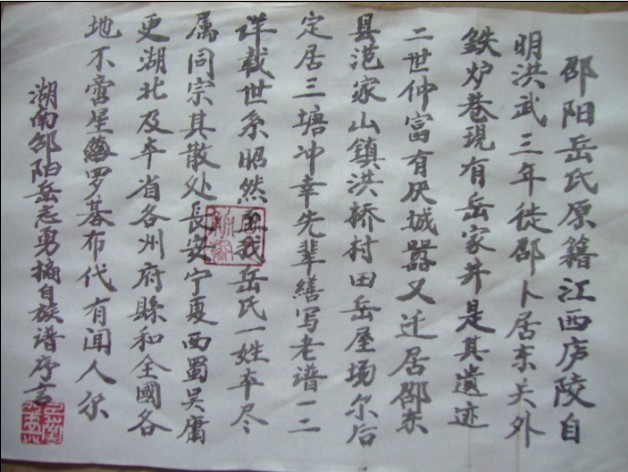 邵阳岳氏原籍江西庐陵自
明洪武三年徙邵卜居东关外
鉄炉巷現有岳家井是其遗迹
二世仲富有厌城嚣又迁居邵东
县范家山镇洪桥村田岳屋场尔后
定居三塘冲幸先辈缮写老谱一二
详载世系昭然我岳氏一姓夲尽
属同宗其散处長安宁夏西蜀吴庸
更湖北及夲省各州府縣和全國各
地不啻星罗棊布代有闻人尔
湖南邵阳岳志勇摘自族谱序言